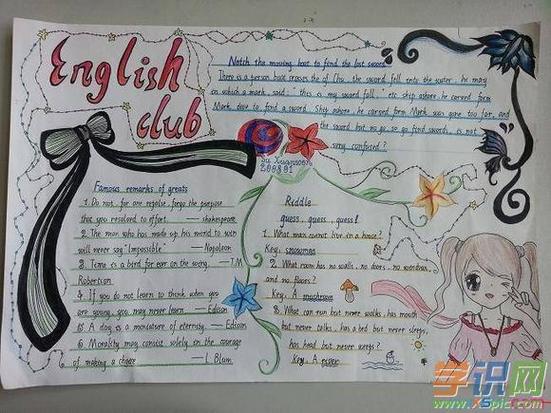 English
club
Notch the moving boat to find the lost sword
There is a person boat crosses the of Chu, the sword fell into the water, he may
in which a mark, said: "this is my sword fall," etc ship ashore, he carved form
Mark dove to find a sword. Ship ashore, he carved form Mark was gone too far, and
the sword but no go, so go find sword, is not
very confused?
208801
Famous remarks of greats
1. Do not, for one repulse, forgo the purpose
that you resolved to effort. — shakespeare
2. The man who has made up his mind to win
will never say "Impossible". — Napoleon
3. Time is a bird for ever on the wing. — T.W
Robertson
4. If you do not learn to think when you
are young, you may never learn. — Edison
5. A day is a miniature of eternity. — Edison
6. Morality may consist solely in the courage
of making a choice — L. Blum
Riddle
guess, guess, guess!
1. What man cannot live in a house?
Key: snowman
2. What room has no walls, no doors, no windows,
and no floors?
Key: A mushroom
3. What can run but never walks, has mouth
but never talks, has a bed but never sleeps,
has head but never weeps?
Key: A river
学识网
www.xspic.com